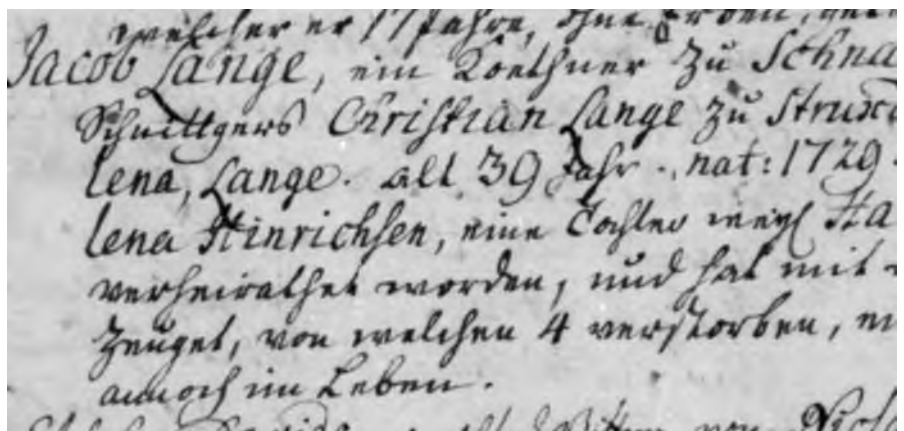 welcher er 17 Jahre, ohne Erben,
Jacob Lange, ein Koethner zu Schna
Schnittgers Christian Lange zu Struxd
lena, Lange. alt 39 Jahr., nat: 1729.
lena Hinrichsen, eine Tochter weyl Ha
verheirathet worden, und hat mit
Zeuget, von welchen 4 verstorben, ei
annoch im Leben.